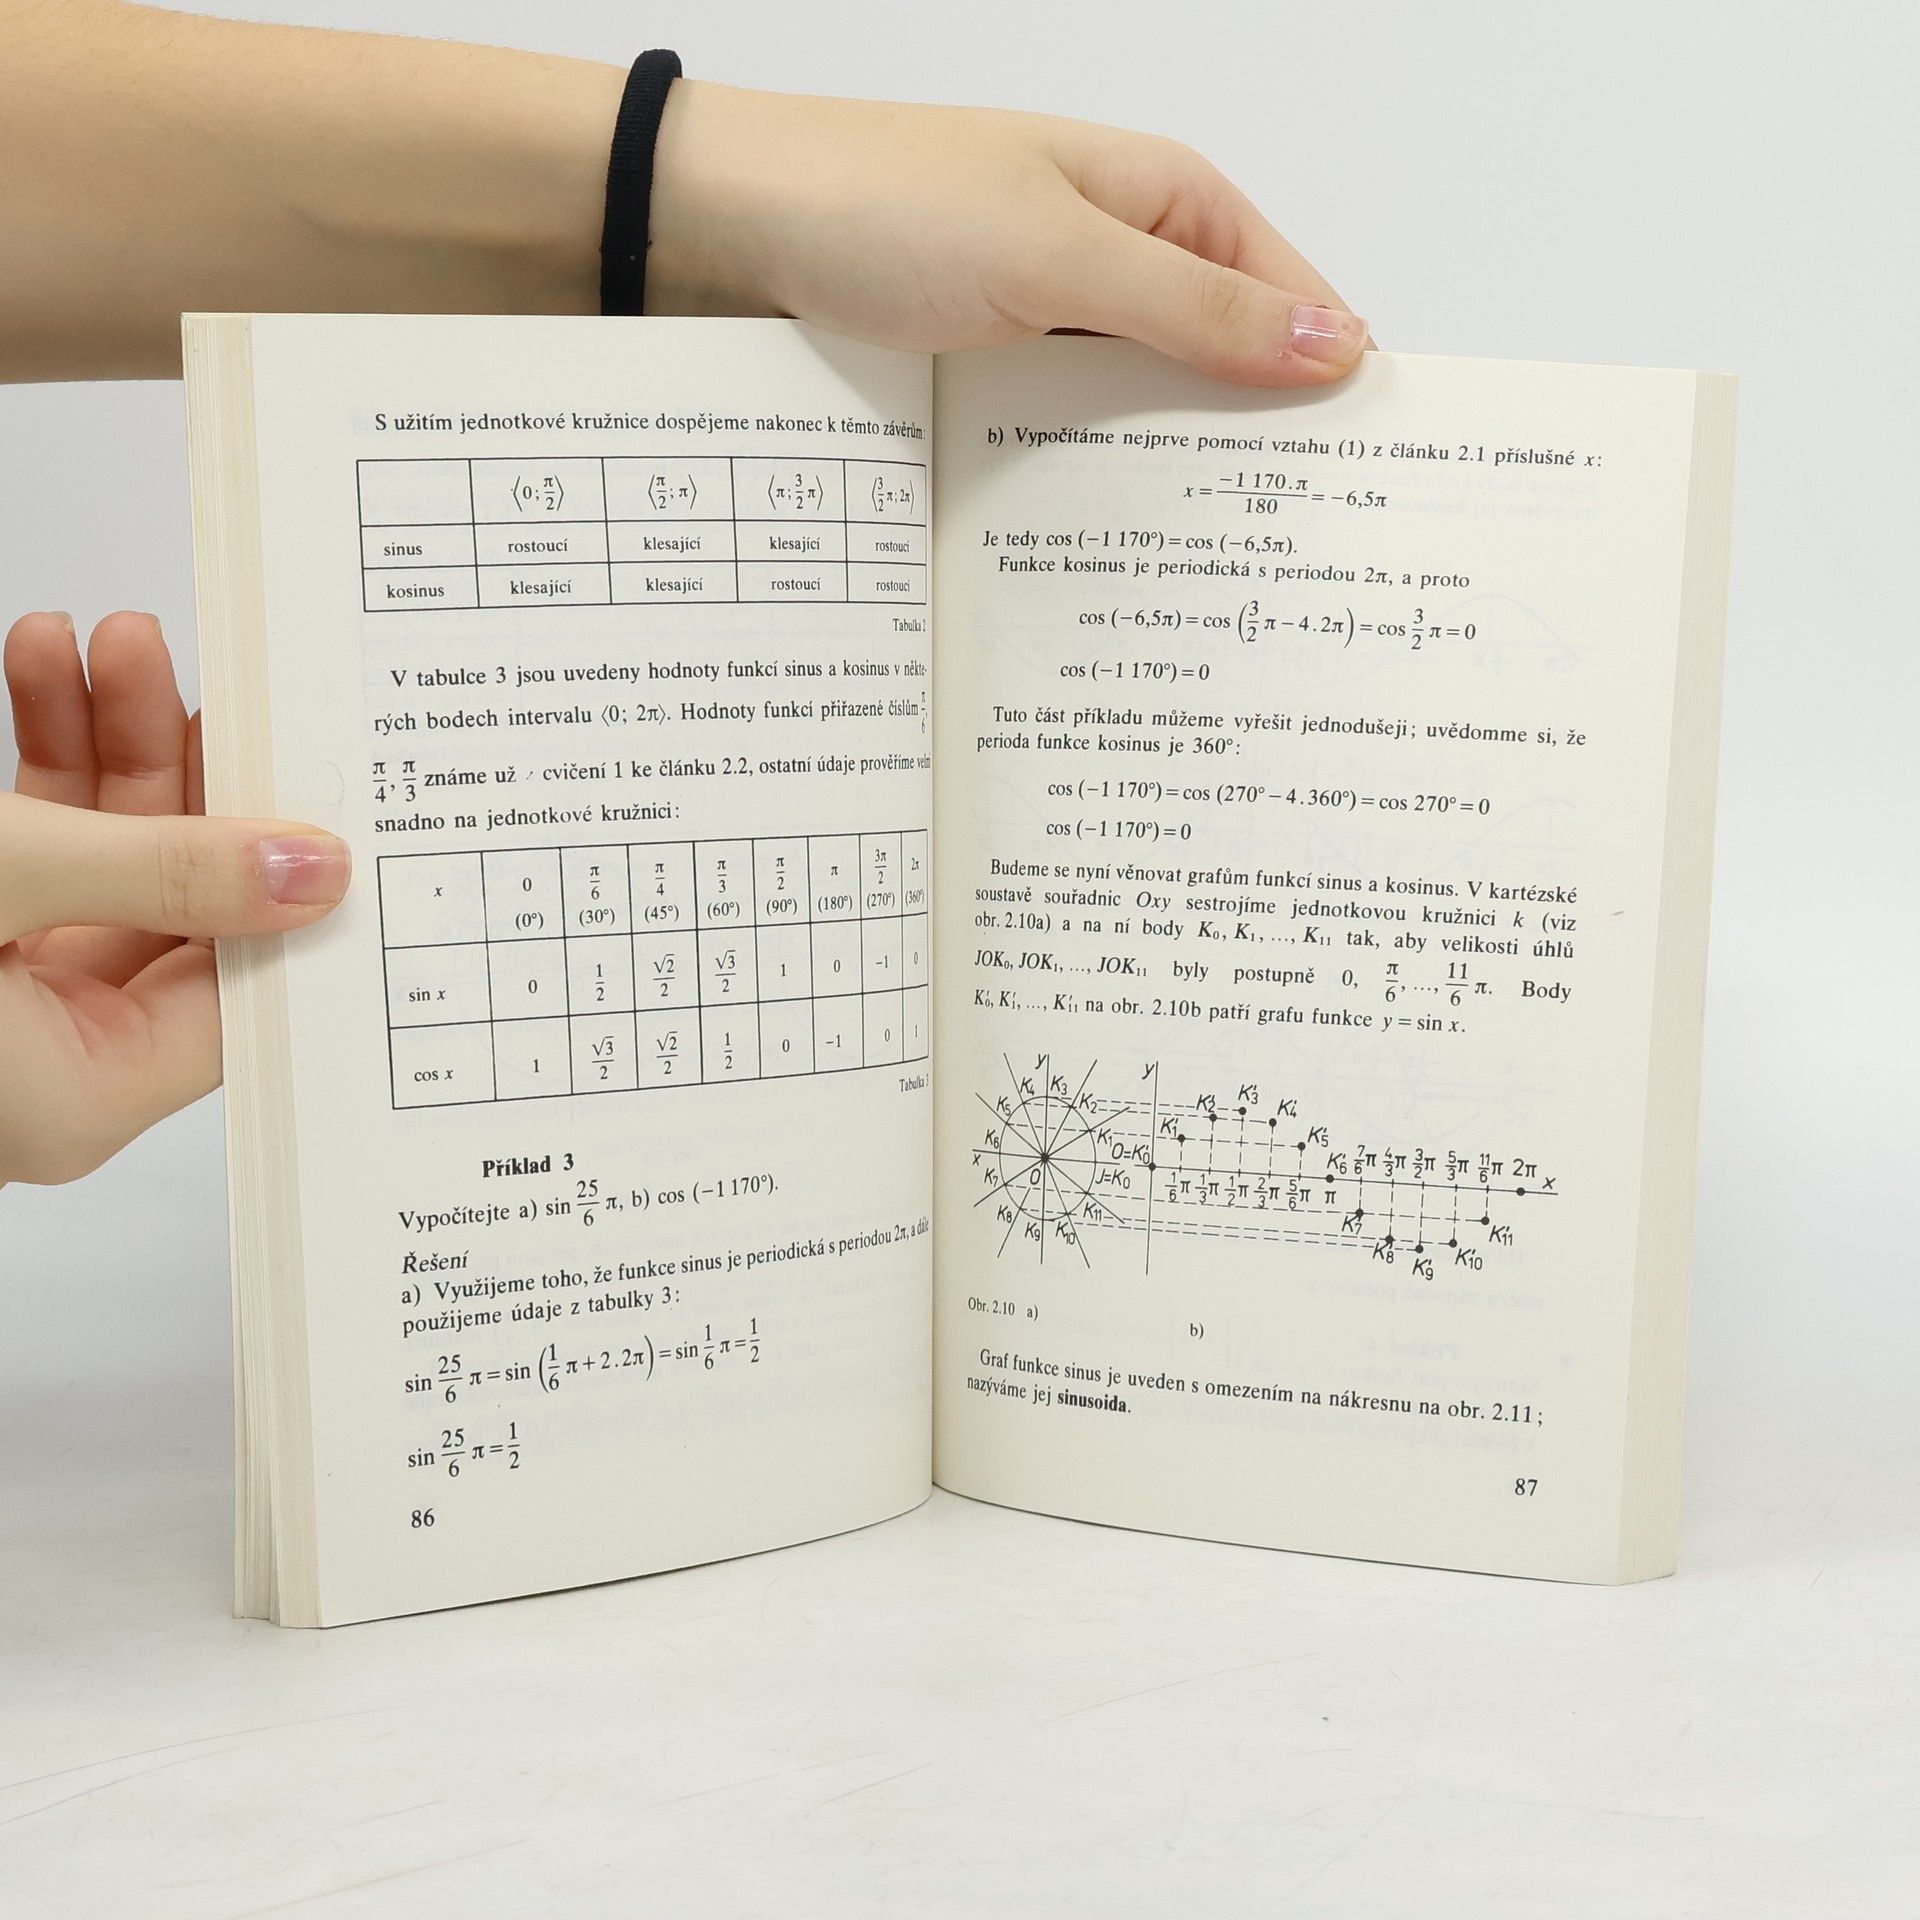 S užitím jednotkové kružnice dospějeme nakonec k těmto závěrům:
⟨0; π/2⟩ ⟨π/2; π⟩ ⟨π; 3/2 π⟩ ⟨3/2 π; 2π⟩
sinus rostoucí klesající klesající rostoucí
kosinus klesající klesající rostoucí rostoucí
Tabulka 2
V tabulce 3 jsou uvedeny hodnoty funkcí sinus a kosinus v někte-
rých bodech intervalu ⟨0; 2π⟩. Hodnoty funkcí přiřazené číslům π/6,
π/4, π/3 známe už cvičení 1 ke článku 2.2, ostatní údaje prověříme velmi
snadno na jednotkové kružnici:
x 0 π/6 π/4 π/3 π/2 π 3π/2 2π
(0°) (30°) (45°) (60°) (90°) (180°) (270°) (360°)
sin x 0 1/2 √2/2 √3/2 1 0 −1 0
cos x 1 √3/2 √2/2 1/2 0 −1 0 1
Tabulka 3
Příklad 3
Vypočítejte a) sin 25/6 π, b) cos (−1 170°).
Řešení
a) Využijeme toho, že funkce sinus je periodická s periodou 2π, a dále
použijeme údaje z tabulky 3:
sin 25/6 π = sin (1/6 π + 2.2π) = sin 1/6 π = 1/2
sin 25/6 π = 1/2
86
b) Vypočítáme nejprve pomocí vztahu (1) z článku 2.1 příslušné x:
x = −1 170.π/180 = −6,5π
Je tedy cos (−1 170°) = cos (−6,5π).
Funkce kosinus je periodická s periodou 2π, a proto
cos (−6,5π) = cos (3/2 π − 4.2π) = cos 3/2 π = 0
cos (−1 170°) = 0
Tuto část příkladu můžeme vyřešit jednodušeji; uvědomme si, že
perioda funkce kosinus je 360°:
cos (−1 170°) = cos (270° − 4.360°) = cos 270° = 0
cos (−1 170°) = 0
Budeme se nyní věnovat grafům funkcí sinus a kosinus. V kartézské
soustavě souřadnic Oxy sestrojíme jednotkovou kružnici k (viz
obr. 2.10a) a na ní body K₀, K₁, ..., K₁₁ tak, aby velikosti úhlů
JOK₀, JOK₁, ..., JOK₁₁ byly postupně 0, π/6, ..., 11/6 π. Body
K′₀, K′₁, ..., K′₁₁ na obr. 2.10b patří grafu funkce y = sin x.
y K₄ K₃ K₅ K₂ K₆ K₁ x O J=K₀ K₇ K₈ K₉ K₁₀ K₁₁
y O=K′₀ K′₁ K′₂ K′₃ K′₄ K′₅ K′₆ 7/6π 4/3π 3/2π 5/3π 11/6π 2π x
1/6π 1/3π 1/2π 2/3π 5/6π π
K′₇ K′₈ K′₉ K′₁₀ K′₁₁
Obr. 2.10 a)
b)
Graf funkce sinus je uveden s omezením na nákresnu na obr. 2.11;
nazýváme jej sinusoida.
87